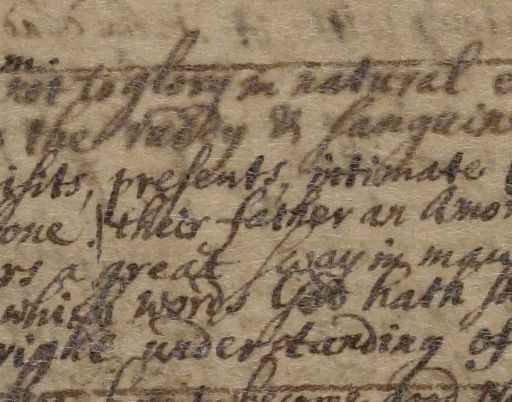 not to glory in natural
the ruddy & sanguin
ishts, presents, intimate
one. their father an Amor
rs a great sway in many
which words God hath
right understanding of